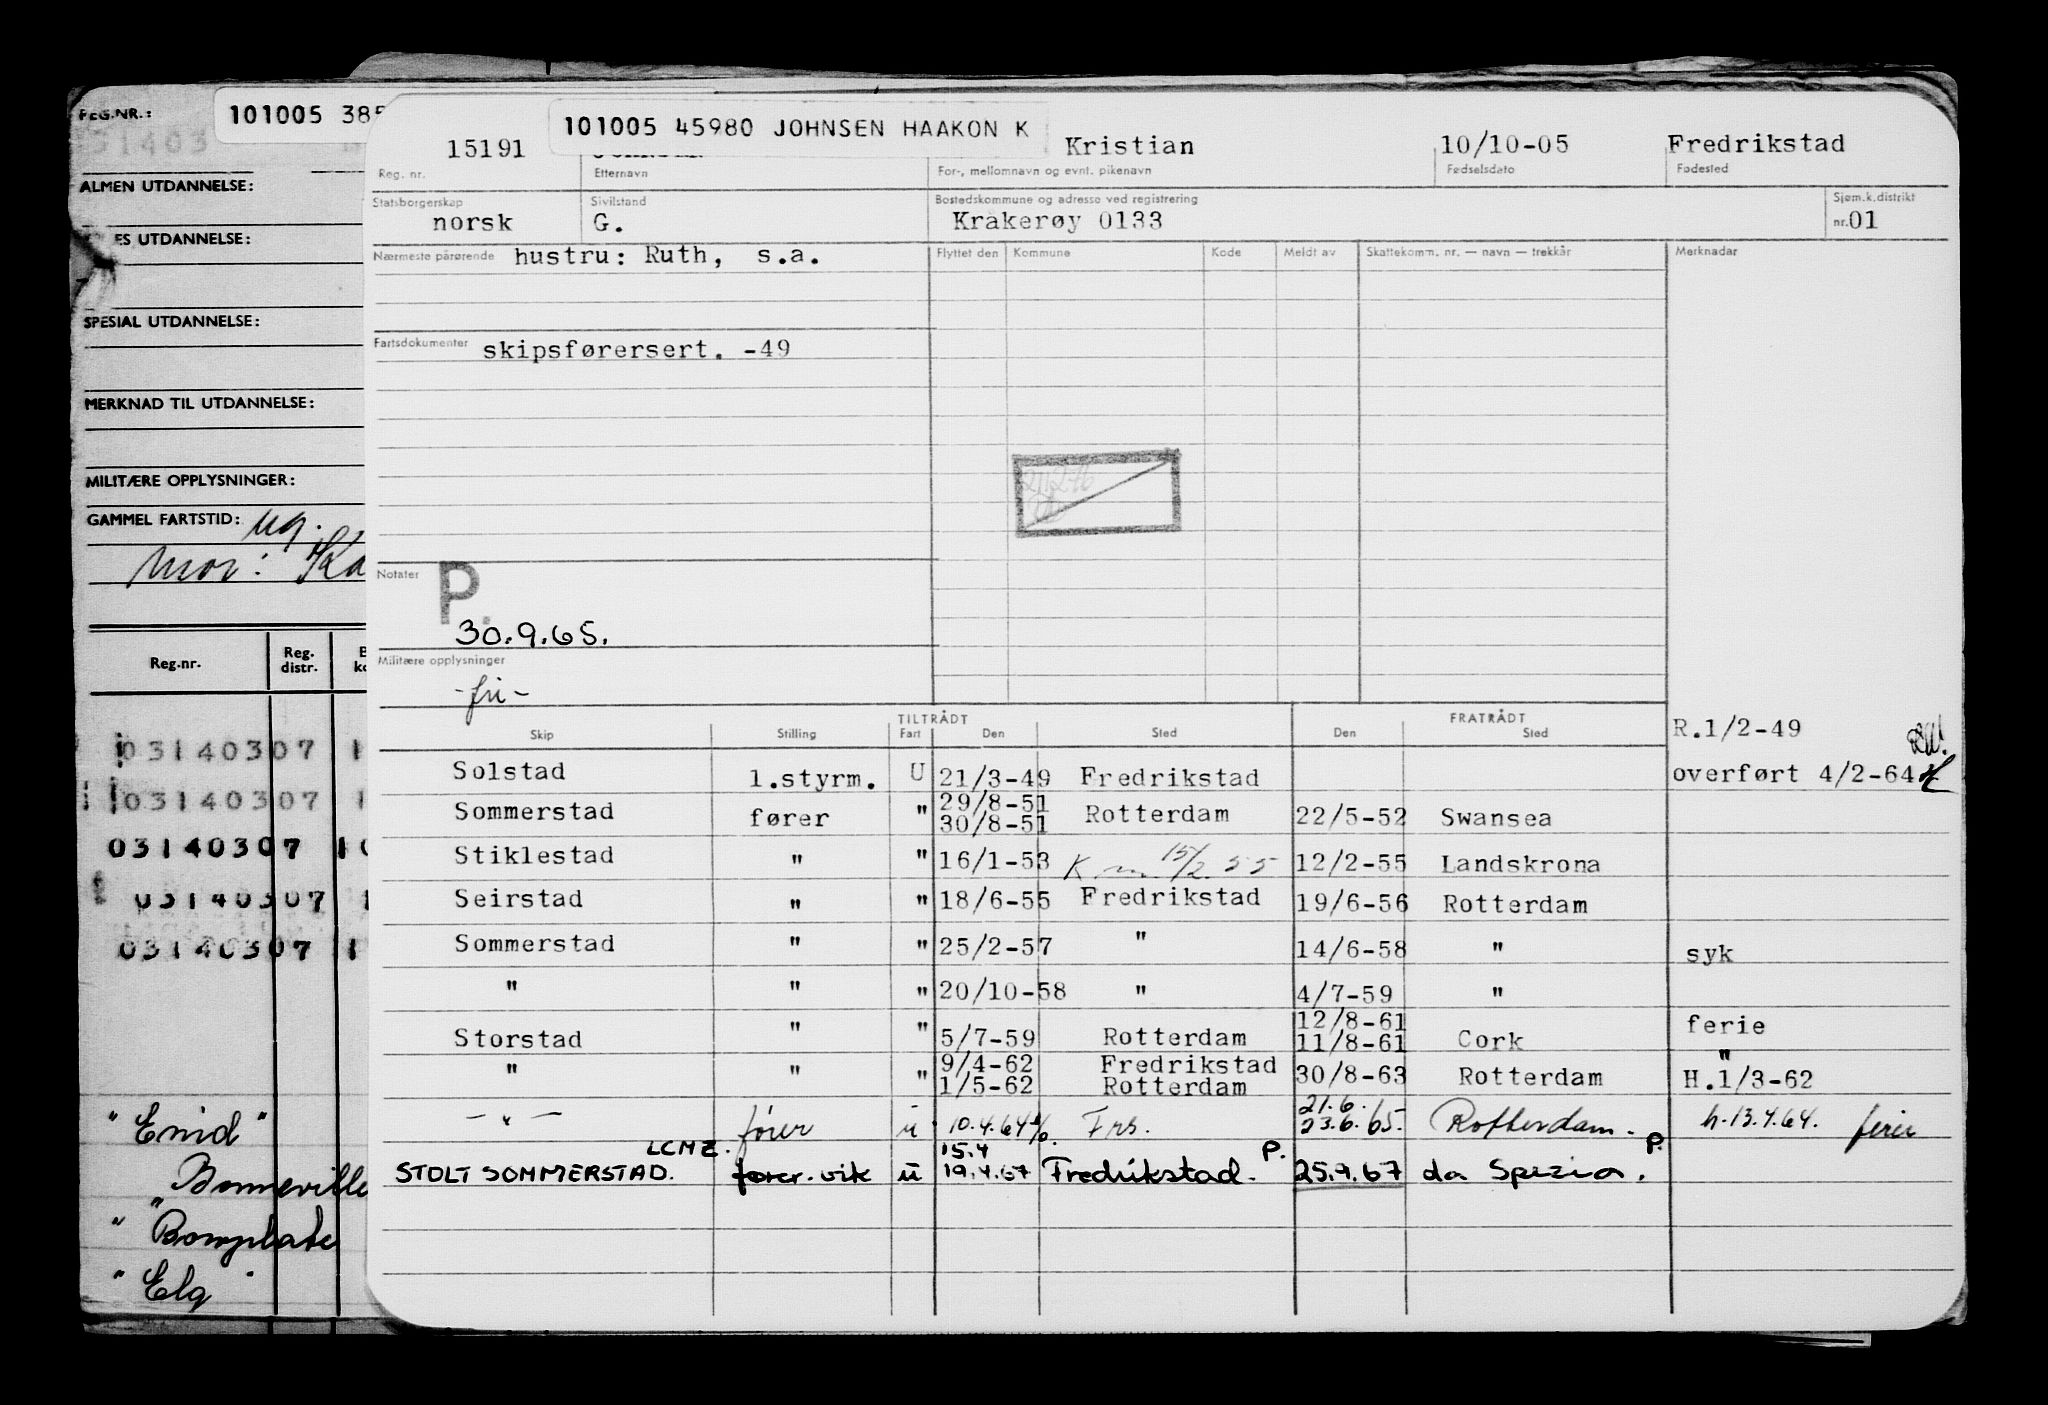 REG.NR.:
101005 385
31403
ALMEN UTDANNELSE:
ES UTDANNELSE:
SPESIAL UTDANNELSE:
MERKNAD TIL UTDANNELSE:
MILITÆRE OPPLYSNINGER:
GAMMEL FARTSTID: ug.
Mor: Ka
Reg.nr. Reg. distr.
03140307 1
03140307 1
03140307 10
03140307 1
03140307 1
"Enid"
"Bonneville
"Bonplate
"Elg"
101005 45980 JOHNSEN HAAKON K
15191 Kristian 10/10-05 Fredrikstad
Reg. nr. Etternavn For-, mellomnavn og evnt. pikenavn Fødselsdato Fødested
Statsborgerskap Sivilstand Bostedskommune og adresse ved registrering Sjøm.k.distrikt
norsk G. Kråkerøy 0133 nr.01
Nærmeste pårørende hustru: Ruth, s.a. Flyttet den Kommune Kode Meldt av Skattekomm. nr. — navn — trekkår Merknader
Fartsdokumenter skipsførersert. -49
Notater P.
30.9.65.
Militære opplysninger
-fri-
TILTRÅDT FRATRÅDT
Skip Stilling Fart Den Sted Den Sted
R.1/2-49
overført 4/2-64
Solstad 1.styrm. U 21/3-49 Fredrikstad
Sommerstad fører " 29/8-51 30/8-51 Rotterdam 22/5-52 Swansea
Stiklestad " " 16/1-53 K.m. 15/2.55 12/2-55 Landskrona
Seirstad " " 18/6-55 Fredrikstad 19/6-56 Rotterdam
Sommerstad " " 25/2-57 " 14/6-58 " syk
" " " 20/10-58 " 4/7-59 "
Storstad " " 5/7-59 Rotterdam 12/8-61 11/8-61 Cork ferie
" " " 9/4-62 1/5-62 Fredrikstad Rotterdam 30/8-63 Rotterdam " H.1/3-62
— " — fører u 10.4.64 Frs. 21.6. 23.6.65. Rotterdam. h.13.4.64. ferie
STOLT SOMMERSTAD. LCMZ. fører.vik u 15.4 19.4.67 Fredrikstad. P. 25.9.67 da Spezia. P.